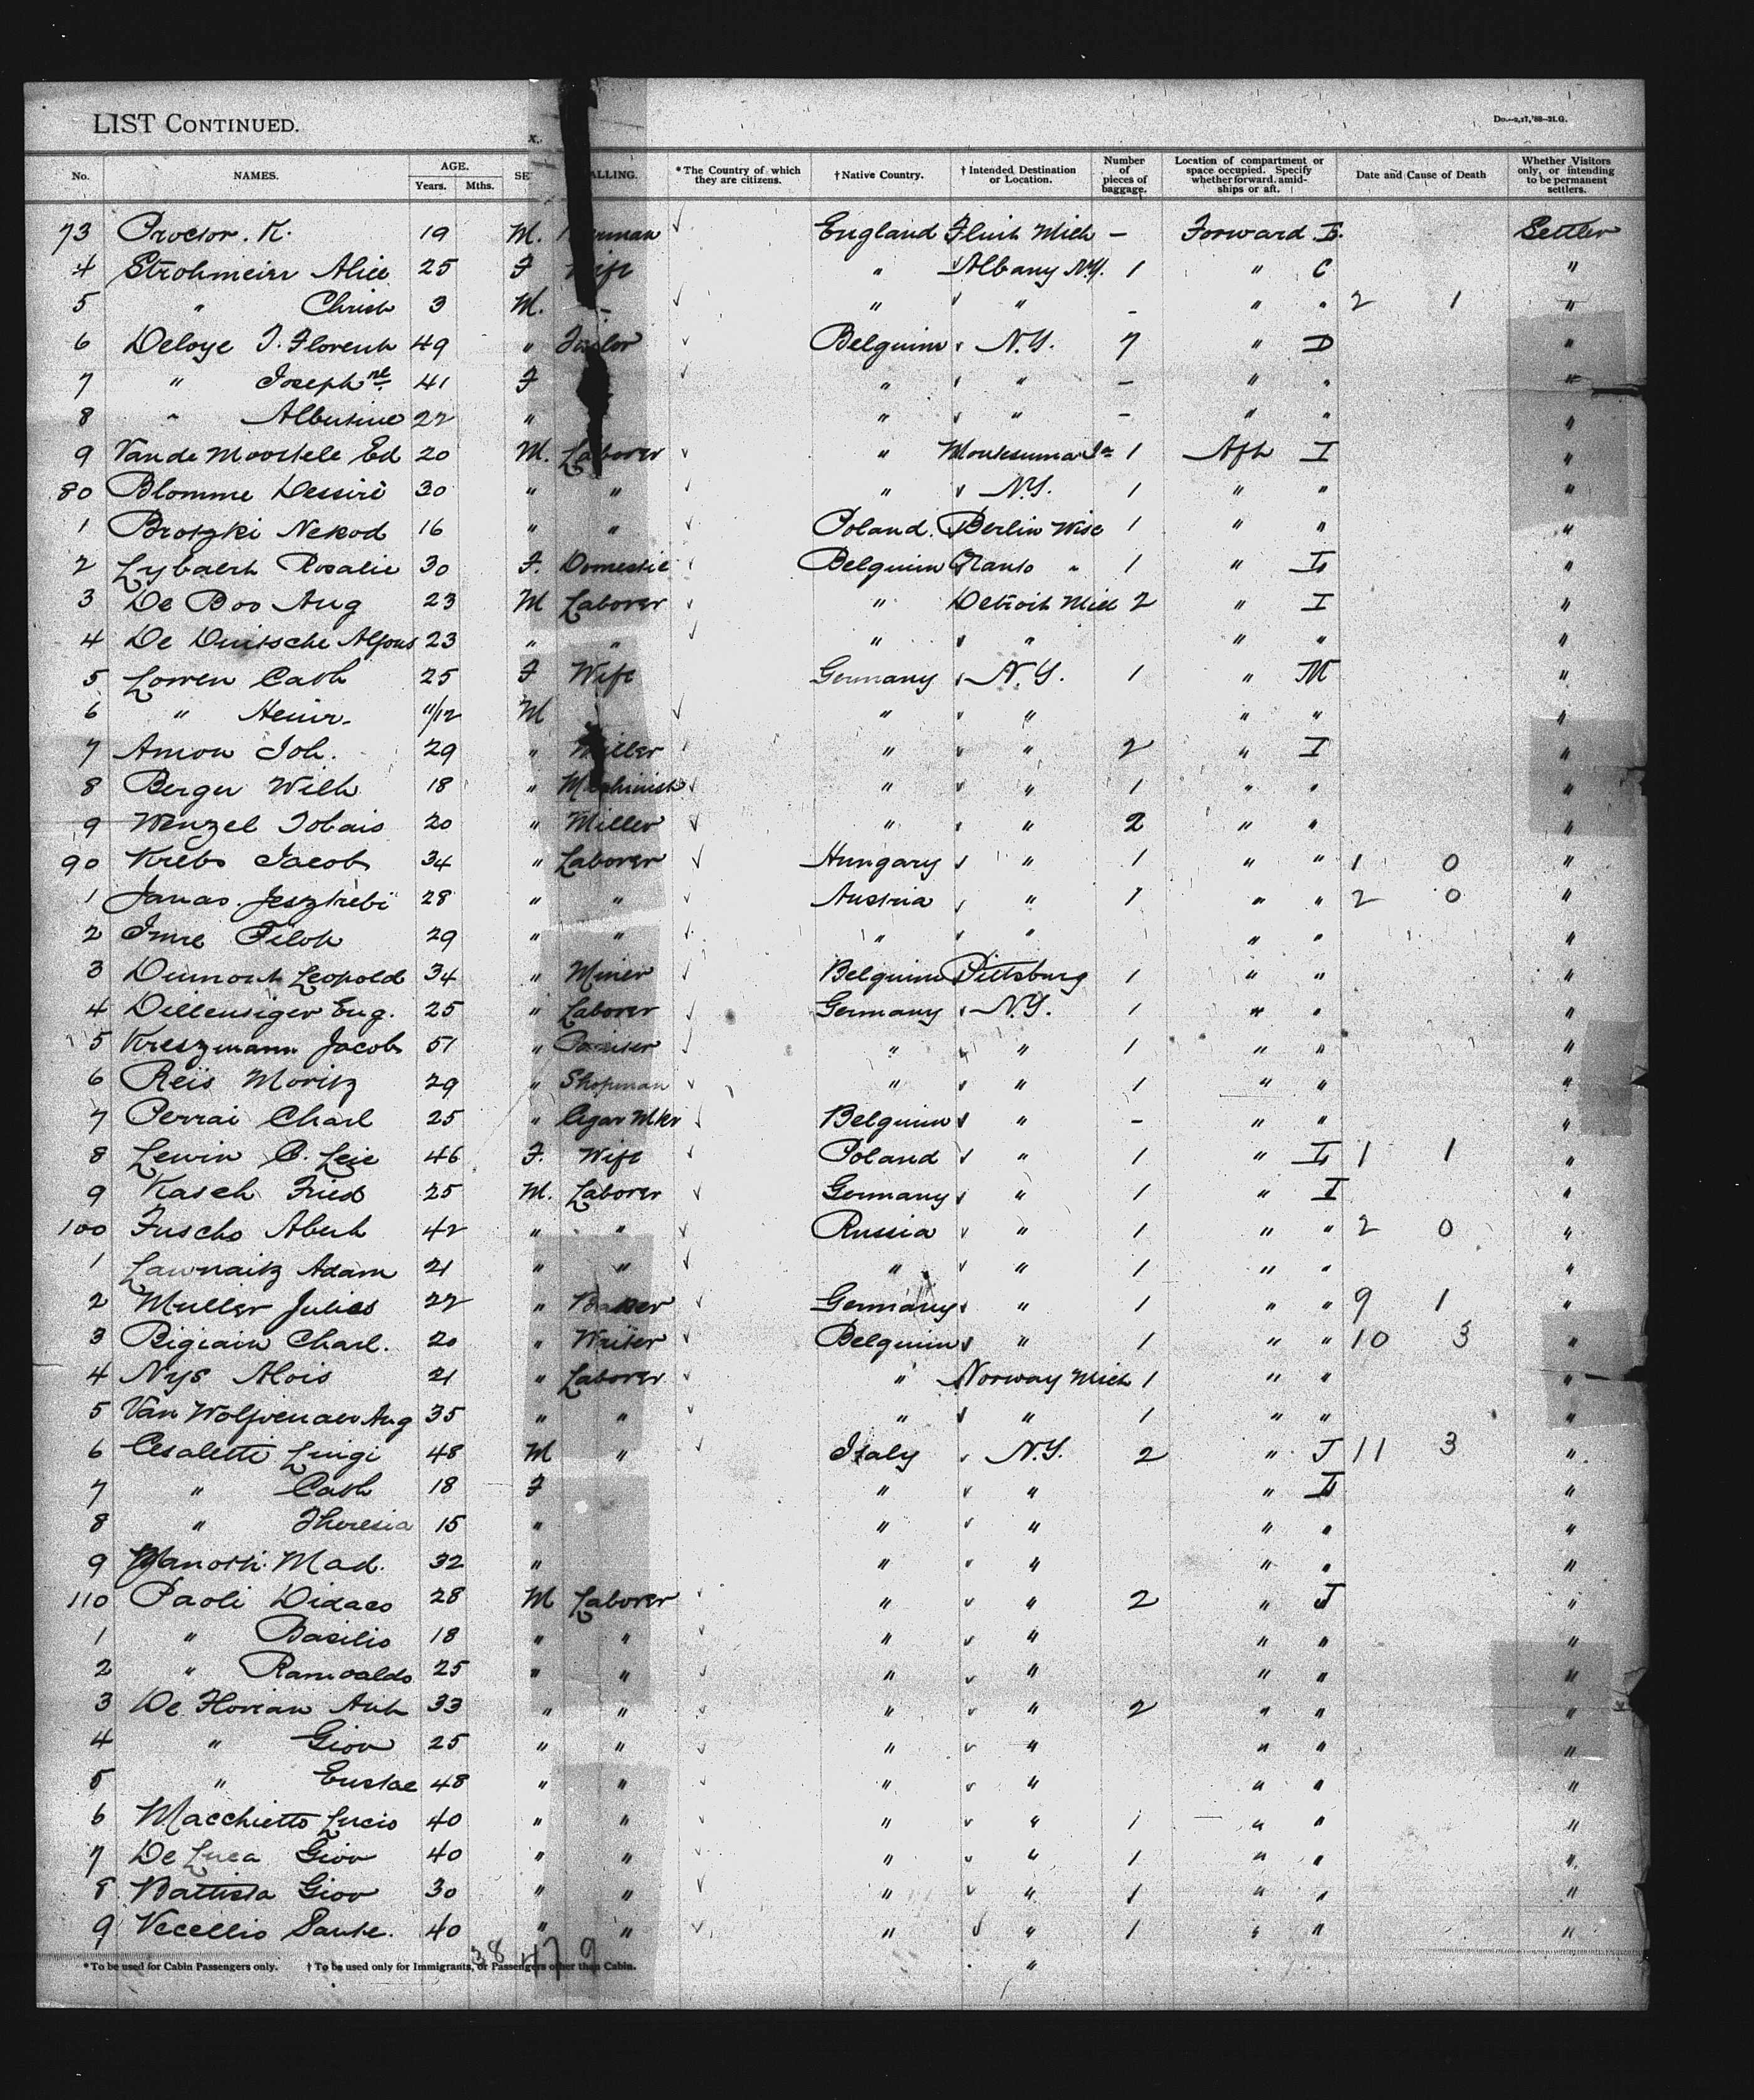 LIST CONTINUED.
No. NAMES. AGE. Years. Mths. SE x. ALLING. * The Country of which they are citizens. † Native Country. † Intended Destination or Location. Number of pieces of baggage. Location of compartment or space occupied. Specify whether forward, amid-ships or aft. Date and Cause of Death Whether Visitors only, or intending to be permanent settlers.
73 Proctor. R. 19 M. England Flint Mich – Forward I. Settler
4 Strohmeier Alice 25 F Wife " Albany N.Y. 1 " C "
5 " Christ 3 M. - " " - " " 2 1 "
6 Deloye J. Florent 49 " Tailor Belguim N.Y. 7 " D "
7 " Joseph ne 41 F " " – " " "
8 " Albertine 22 " " " – " " "
9 Van de Moortele Ed 20 M. Laborer " Montesuma Ia 1 Aft I "
80 Blomme Dessirè 30 " " " N.Y. 1 " " "
1 Brotzki Nekod 16 " " Poland. Berlin Wisc 1 " " "
2 Lybaert Rosalie 30 F. Domestic Belguim " 1 " "
3 De Boo Aug 23 M Laborer " Detroit Mich 2 " I "
4 De Duitsche Alfons 23 " " " " " " "
5 Lowen Cath 25 F Wife Germany N.Y. 1 " M "
6 " Heinr. 11/12 M " " " " "
7 Amon Joh. 29 " Miller " " 2 " I "
8 Berger Wilh 18 " Machinist " " 1 " " "
9 Wenzel Tobais 20 " Miller " " 2 " " "
90 Krebs Jacob 34 " Laborer Hungary " 1 " " 1 0 "
1 Janas. Jesztrebi 28 " " Austria " 1 " " 2 0 "
2 Imre Filok 29 " " " " " " "
3 Dumont Leopold 34 " Miner Belguim Pittsburg 1 " " "
4 Dillensiger Eug. 25 " Laborer Germany N.Y. 1 " " "
5 Kreszmann Jacob 51 " " " 1 " " "
6 Reis Moritz 29 " Shopman " " 1 " " "
7 Perrai Charl 25 " Cigar Mkr Belguim " - " " "
8 Lewin C. Leie 46 F. Wife Poland " 1 " 1 1 "
9 Kasch Fried 25 M. Laborer Germany " 1 " I "
100 Fuschs Abert 42 " " Russia " 1 " " 2 0 "
1 Lawnaitz Adam 21 " " " " 1 " " "
2 Muller Julies 22 " Baker Germany " 1 " " 9 1 "
3 Rigiain Charl. 20 " Writer Belguim " 1 " " 10 3 "
4 Nys Alois 21 " Laborer " Norway Mich 1 " " "
5 Van Wolfvenaer Aug 35 " " " " 1 " " "
6 Cesaletti Luigi 48 M " Italy N.Y. 2 " J 11 3 "
7 " Cath 18 F " " " "
8 " Theresia 15 " " " " " "
9 Mad. 32 " " " " " "
110 Paoli Didaco 28 M Laborer " " 2 " J "
1 " Basilio 18 " " " " " " "
2 " Ramoaldo 25 " " " " " " "
3 De Florian Ant 33 " " " " 2 " " "
4 " Giov 25 " " " " " " "
5 " Eustac 48 " " " " " " "
6 Macchietto Lucio 40 " " " " 1 " " "
7 De Luca Giov 40 " " " " 1 " " "
8 Battista Giov 30 " " " " 1 " " "
9 Vecellio Sante. 40 " " " " 1 " " "
38 47 9 "
* To be used for Cabin Passengers only. † To be used only for Immigrants, or Passengers other than Cabin.